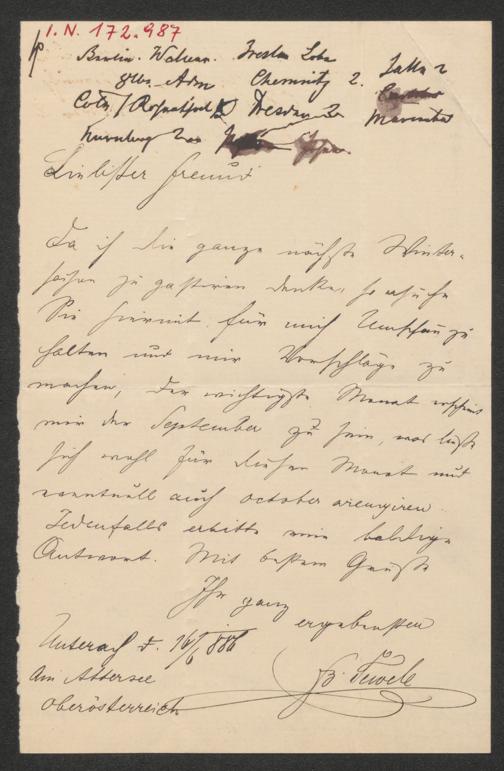 I. N. 172.987
Berlin. Wallner.
Chemnitz 2.
Cöln / Dresden 2
Nürnberg
Liebster Freund
Da ich die ganze nächste Winter-
saison zu gastiren denke, so ersuche
Sie hiermit für mich Umschau zu
halten und mir Vorschläge zu
machen, der wichtigste Monat erscheint
mir der September zu sein, was ließe
sich wohl für diesen Monat und
eventuell auch october arengiren
Jedenfalls erbitte eine baldige
Antwort. Mit bestem Gruße
Ihr ganz
ergebensten
Unterach d. 16/6 886
Am Attersee
Oberösterreich
Fz. Tewele